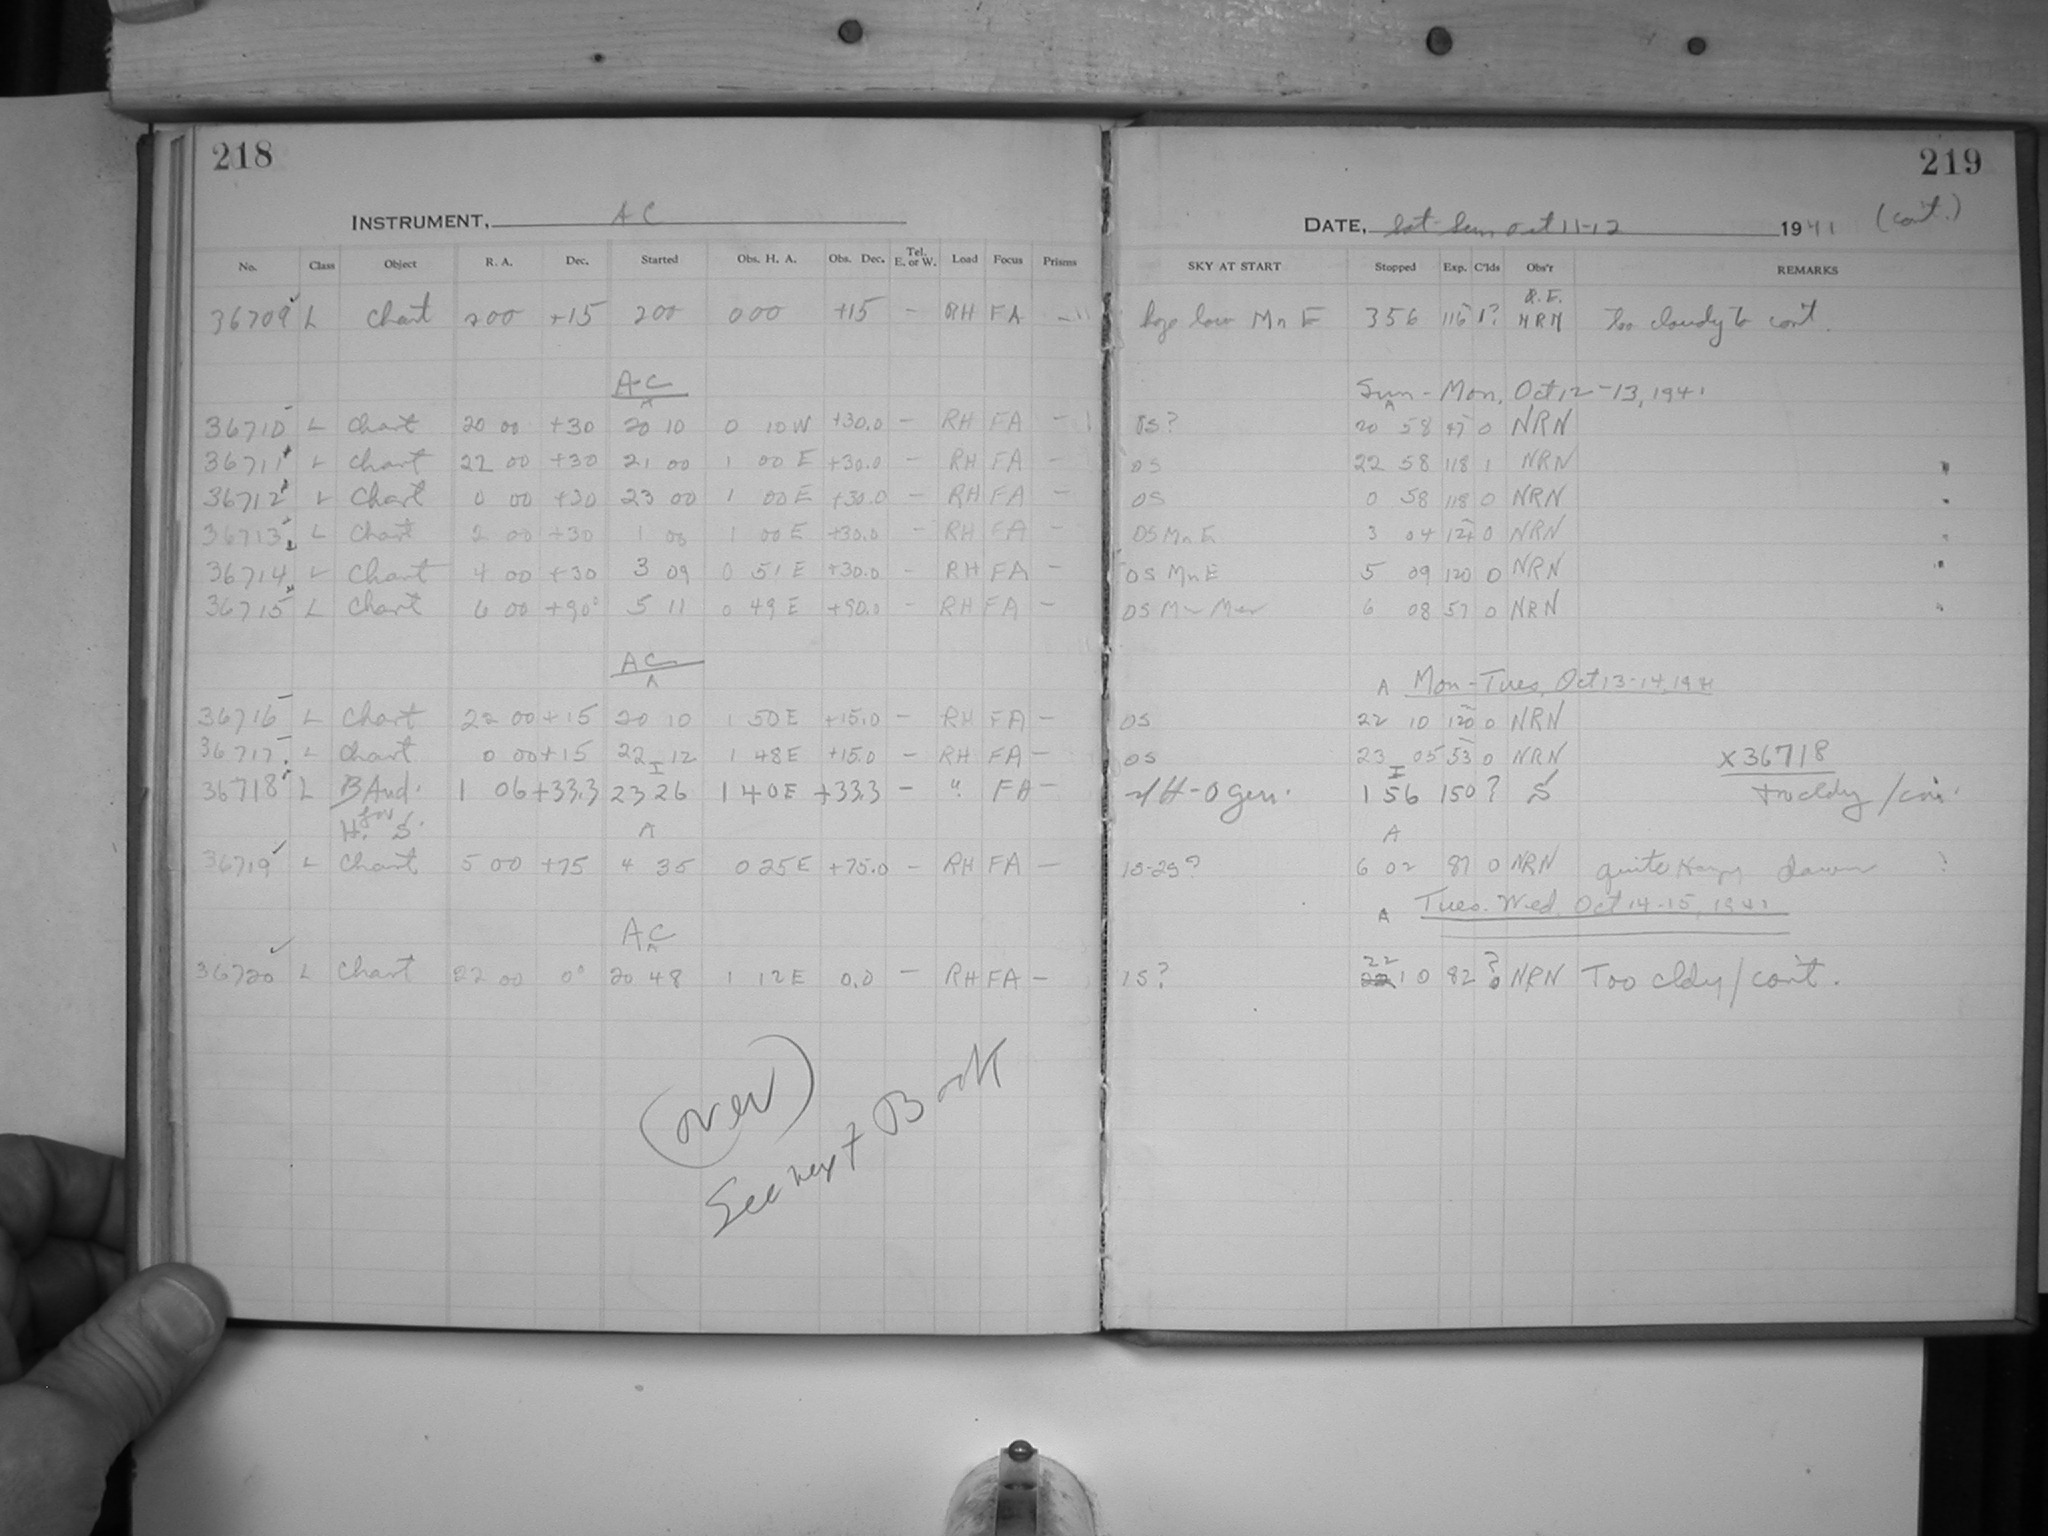 218
INSTRUMENT, AC
No. Class Object R. A. Dec. Started Obs. H. A. Obs. Dec. Tel. E. or W. Load Focus Prisms
36709 L Chart 2 00 +15 2 00 0 00 +15 - RH FA -
AC
A
36710 L Chart 20 00 +30 20 10 0 10W +30.0 - RH FA -
36711 L Chart 22 00 +30 21 00 1 00 E +30.0 - RH FA -
36712 L Chart 0 00 +30 23 00 1 00 E +30.0 - RH FA -
36713 L Chart 2 00 +30 1 00 E +30.0 - RH FA -
36714 L Chart 4 00 +30 3 09 0 51 E +30.0 - RH FA -
36715 L Chart 6 00 +90° 5 11 0 49 E +90.0 - RH FA -
AC
A
36716 L Chart 22 00 +15 20 10 1 50 E +15.0 - RH FA -
36717 L Chart 0 00 +15 22 12 1 48 E +15.0 - RH FA -
I
36718 L B And. 1 06 +33.3 23 26 1 40 E +33.3 - " FA -
for
H. S.
A
36719 L Chart 5 00 +75 4 35 0 25 E +75.0 - RH FA -
AC
A
36720 L Chart 22 00 0° 20 48 1 12 E 0.0 - RH FA -
(over)
See next Book
219
DATE, Sat-Sun Oct 11-12 1941 (cont.)
SKY AT START Stopped Exp. C'lds Obs'r REMARKS
haze low Mn E 3 56 116 1? NRN Too cloudy to cont.
Sun-Mon, Oct 12-13, 1941
A
OS? 20 58 47 0 NRN
OS 22 58 118 1 NRN
OS 0 58 118 0 NRN
OS Mn E 3 04 0 NRN
OS Mn E 5 09 120 0 NRN
OS Mn Mer 6 08 57 0 NRN
A Mon-Tues, Oct 13-14, 1941
OS 22 10 120 0 NRN
OS 23 05 53 0 NRN x36718
I
1 56 150 ? S too cldy / con.
A
1S-2S? 6 02 87 0 NRN quite Hazy dawn
A Tues. Wed. Oct 14-15, 1941
1S? 22 10 82 ? NRN Too cldy / cont.